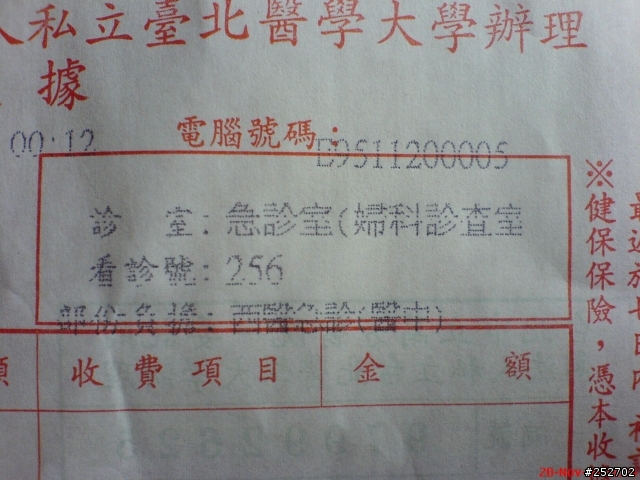 私立臺北醫學大學辦理
據
00:12 電腦號碼：E9511200005
診 室：急診室(婦科診查室
看診號：256
部份負擔：西醫急診(醫中)
額 收費項目 金 額
※健保保險，憑本收
20-Nov #252702